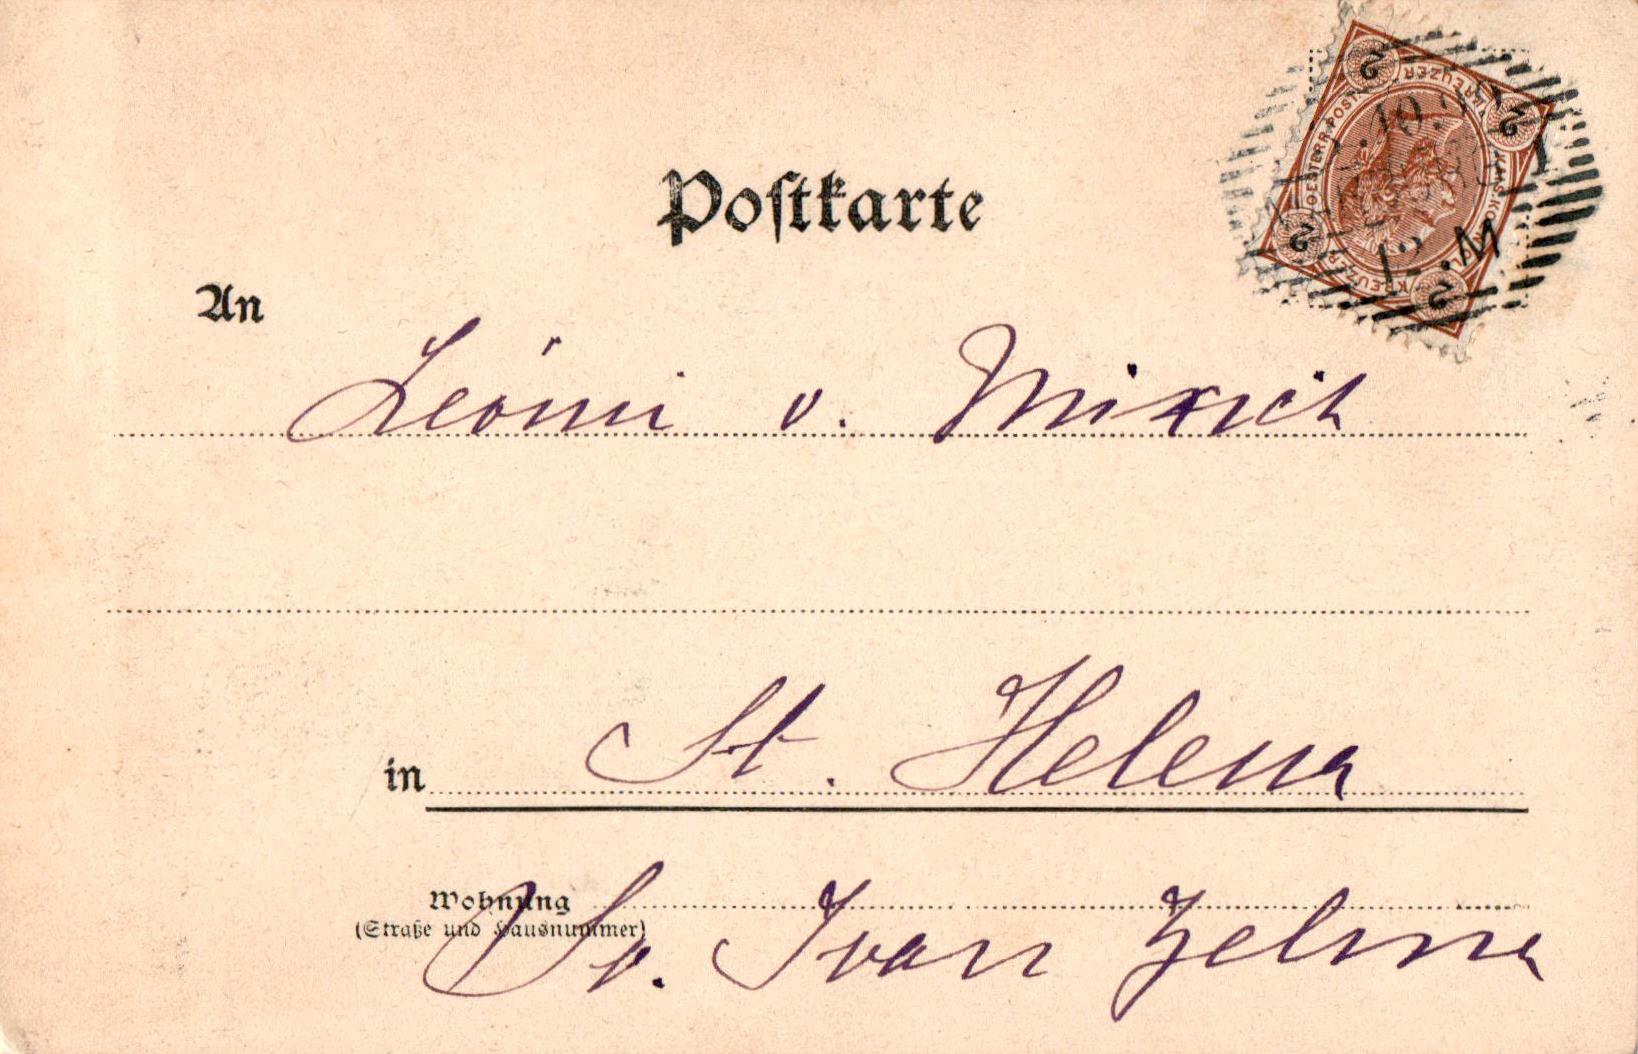 Postkarte
An
Leóni v. Mixich
in St. Helena
Wohnung
(Straße und Hausnummer)
Sv. Ivan Zelina
2 KREUZER 2
OESTERR. POST
KREUZER
2 2
12.M
1